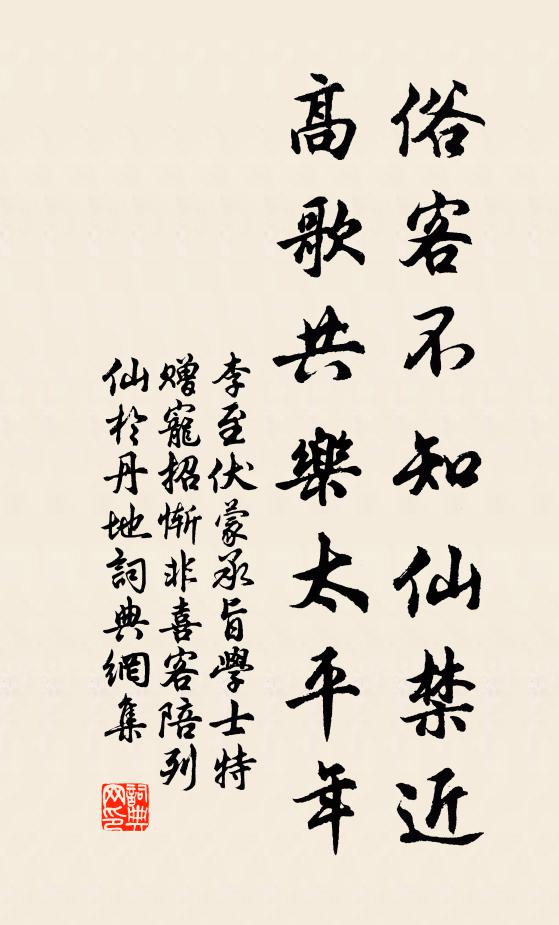 俗客不知仙禁近
高歌共樂太平年
李至伏蒙承旨學士特
贈寵招慚非喜客陪列
仙於丹地詞典網集
詞典网印